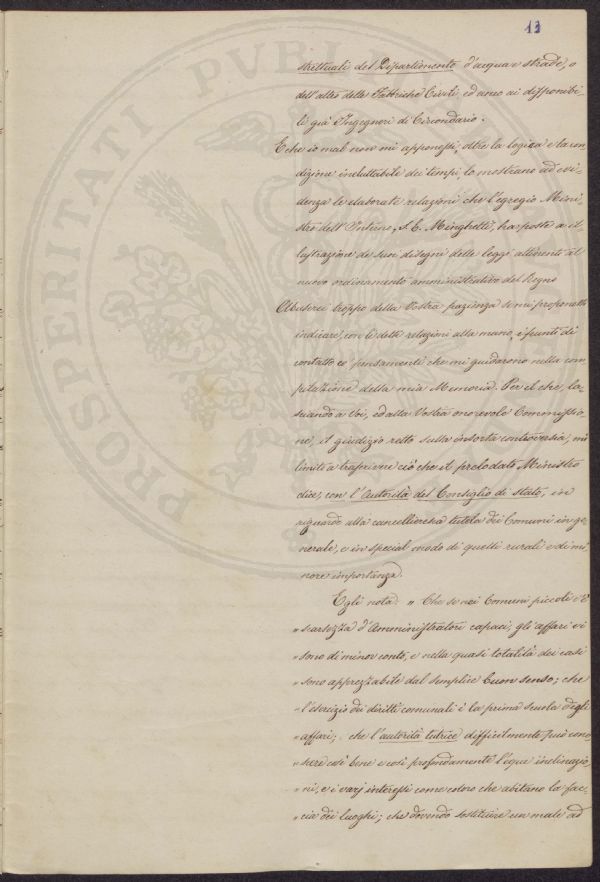 13
strettuali del Dipartimento d'acque e strade, o
dell'altro delle Fabbriche Civili, ed anco ai disponibi-
li già Ingegneri di Circondario.
E che io mal non mi apponessi, oltre la logica e la con-
dizione ineluttabile dei tempi, lo mostrano ad evi-
denza le elaborate relazioni che l'egregio Mini
stro dell'Interno, S. E. Minghetti, ha poste a il-
lustrazione de' suoi disegni delle leggi attinenti al
nuovo ordinamento amministrativo del Regno
Abuserei troppo della Vostra pazienza se mi proponessi
indicare, con le dette relazioni alla mano, i punti di
contatto co' pensamenti che mi guidarono nella com-
pilazione della mia Memoria. Per il che, la-
sciando a Voi, ed alla Vostra onorevole Commissio-
ne, il giudizio retto sulla insorta controversia, mi
limito a trascrivere ciò che il prelodato Ministro
dice, con l'Autorità del Consiglio di stato, in
riguardo alla cancelleresca tutela dei Comuni in ge-
nerale, e in special modo di quelli rurali e di mi-
nore importanza.
Egli nota: „ Che se nei Comuni piccoli c'è
„ scarsezza d'Amministratori capaci, gli affari vi
„ sono di minor conto, e nella quasi totalità dei casi
„ sono apprezzabili dal semplice buon senso; che
„ l'esercizio dei diritti comunali è la prima scuola degli
„ affari; che l'autorità tutrice difficilmente può cono
„ scere così bene e così profondamente l'eque inclinazio
„ ni, e i varj interessi come coloro che abitano la fac-
„ cia dei luoghi; che dovendo sostituire un male ad
PROSPERITATI PUBLICAE